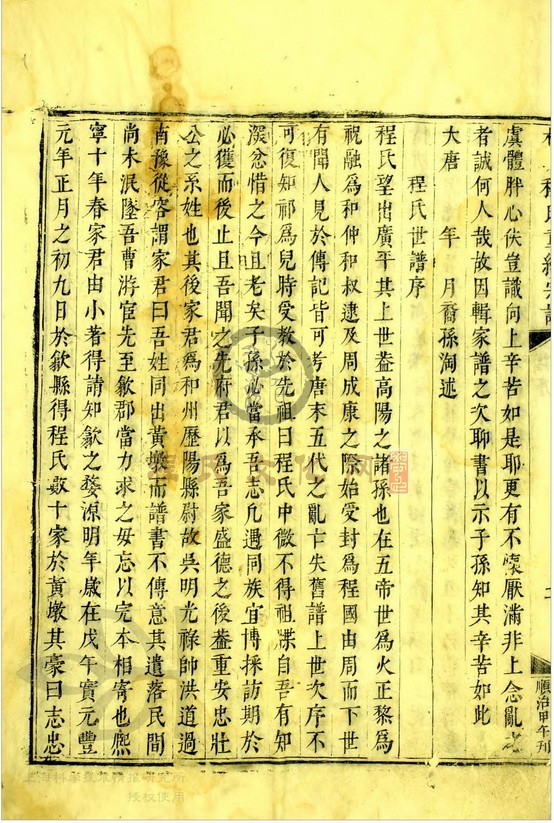 程氏
虞體胖心佚豈識向上辛苦如是耶更有不懷厭滿非上念亂
者誠何人哉故因輯家譜之次聊書以示子孫知其辛苦如此
大唐　年　月裔孫淘述
程氏世譜序
程氏望出廣平其上世葢高陽之諸孫也在五帝世爲火正黎爲
祝融爲和仲和叔逮及周成康之際始受封爲程國由周而下世
有聞人見於傳記皆可考唐末五代之亂亡失舊譜上世次序不
可復知祁爲兒時受敎於先祖曰程氏中微不得祖牒自吾有知
深忿惜之今且老矣子孫必當承吾志凡遇同族宜博採訪期於
必獲而後止且吾聞之先府君以爲吾家盛德之後葢重安忠壯
公之系姓也其後家君爲和州歷陽縣尉故吳明光祿帥洪道過
南豫從容謂家君曰吾姓同出黃墩而譜書不傳意其遺落民間
尚未泯墜吾曹游宦先至歙郡當力求之毋忘以完本相寄也熈
寧十年春家君由小著得請知歙之婺源明年歲在戊午實元豐
元年正月之初九日於歙縣得程氏數十家於黃墩其豪曰志忠
順治甲午刋
上海科學技術情報研究所
授权使用